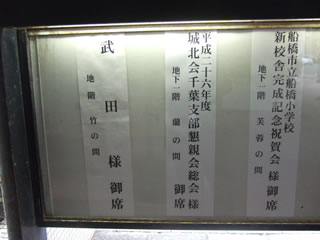 船橋市立船橋小学校
新校舎完成記念祝賀会様 御席
地下一階 芙蓉の間
平成二十六年度
城北会千葉支部懇親会総会様 御席
地下一階 蘭の間
武田様 御席
地階 竹の間